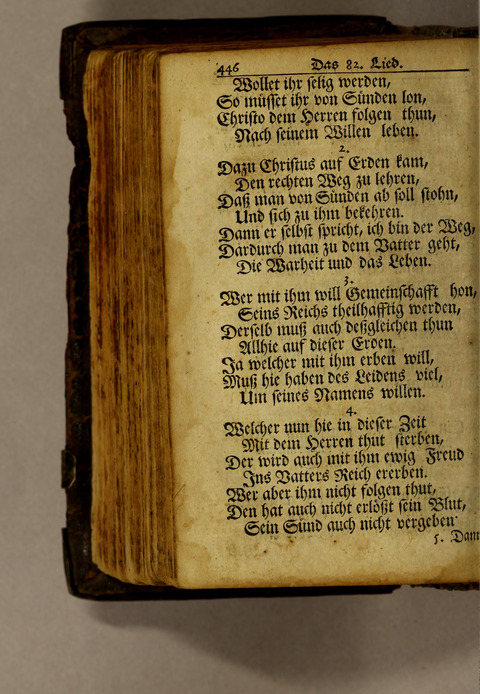 446 Das 82. Lied.
Wollet ihr selig werden,
So müsset ihr von Sünden lon,
Christo dem Herren folgen thun,
Nach seinem Willen leben.
2.
Dazu Christus auf Erden kam,
Den rechten Weg zu lehren,
Daß man von Sünden ab soll stohn,
Und sich zu ihm bekehren.
Dann er selbst spricht, ich bin der Weg,
Dardurch man zu dem Vatter geht,
Die Warheit und das Leben.
3.
Wer mit ihm will Gemeinschafft hon,
Seins Reichs theilhafftig werden,
Derselb muß auch deßgleichen thun
Allhie auf dieser Erden.
Ja welcher mit ihm erben will,
Muß hie haben des Leidens viel,
Um seines Namens willen.
4.
Welcher nun hie in dieser Zeit
Mit dem Herren thut sterben,
Der wird auch mit ihm ewig Freud
Ins Vatters Reich ererben.
Wer aber ihm nicht folgen thut,
Den hat auch nicht erlößt sein Blut,
Sein Sünd auch nicht vergeben
5. Dann